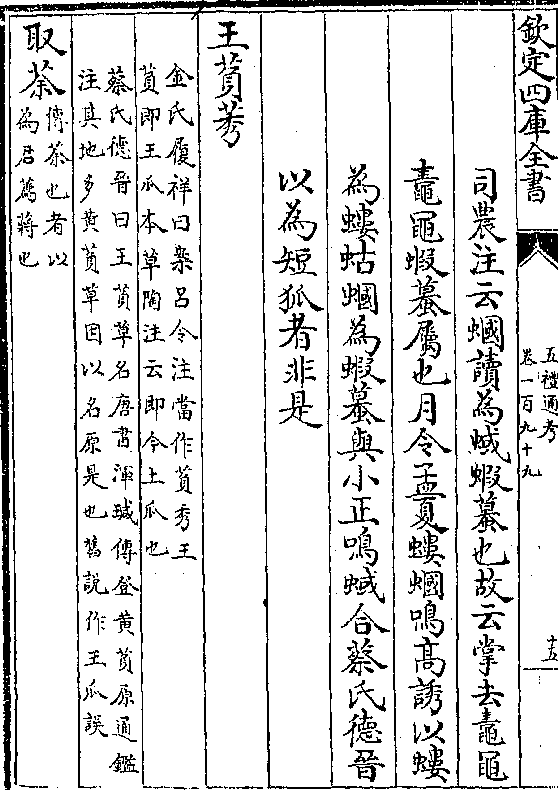 欽定四庫全書
五禮通考
卷一百九十九
十五
司農注云蟈讀為蜮蝦蟇也故云掌去鼃黽
鼃黽蝦蟇屬也月令孟夏螻蟈鳴高誘以螻
為螻蛄蟈為蝦蟇與小正鳴蜮合蔡氏德晉
以為短狐者非是
王萯莠
金氏履祥曰案呂令注當作萯秀王
萯即王瓜本草陶注云即今土瓜也
蔡氏德晉曰王萯草名唐書渾瑊傳登黄萯原通鑑
注其地多黄萯草因以名原是也舊説作王瓜誤
取荼
傳荼也者以
為君薦蔣也